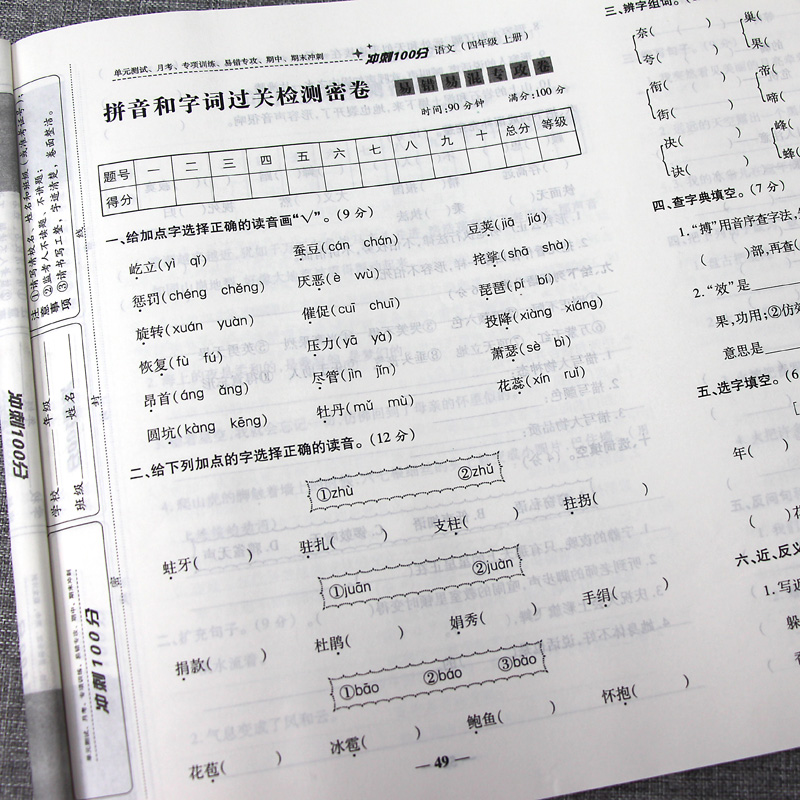 单元测试、月考、专项训练、易错专攻、期中、期末冲刺 冲刺100分 语文（四年级 上册）
拼音和字词过关检测密卷 易错易混专攻卷
时间:90分钟 满分:100分
题号 一 二 三 四 五 六 七 八 九 十 总分 等级
得分
一、给加点字选择正确的读音画“√”。(9分)
屹立(yì qǐ) 蚕豆(cán chán) 豆荚(jiā jiá)
惩罚(chéng chěng) 厌恶(è wù) 挓挲(shā shà)
旋转(xuán yuàn) 催促(cuī chuī) 琵琶(pí bí)
恢复(fù fú) 压力(yā yà) 投降(xiàng xiáng)
昂首(áng ǎng) 尽管(jìn jǐn) 萧瑟(sè bì)
圆坑(kàng kēng) 牡丹(mǔ mù) 花蕊(xín ruǐ)
二、给下列加点的字选择正确的读音。(12分)
①zhù ②zhǔ
蛀牙( ) 驻扎( ) 支柱( ) 拄拐( )
①juān ②juàn
捐款( ) 杜鹃( ) 娟秀( ) 手绢( )
①bāo ②báo ③bào
花苞( ) 冰雹( ) 鲍鱼( ) 怀抱( )
— 49 —
三、辨字组词。(
奈( ) 巢(
夸( ) 果(
衔( ) 帝(
街( ) 啼(
决( ) 峰(
诀( ) 蜂(
四、查字典填空。(7分)
1.“搏”用音序查字法,
( )部,再查(
2.“效”是
果,功用;②仿
意思是
五、选字填空。(6
年( )
( )花
六、近、反义
1.写近
躲
注意事项
①请写清校名、姓名和班级（或准考证号）。
②监考人不读题、不讲题；
③请书写工整，字迹清楚，卷面整洁。
线
封
密
学校
年级
班级
姓名
冲刺100分
单元测试、月考、专项训练、易错专攻、期中、期末冲刺
冲刺100分